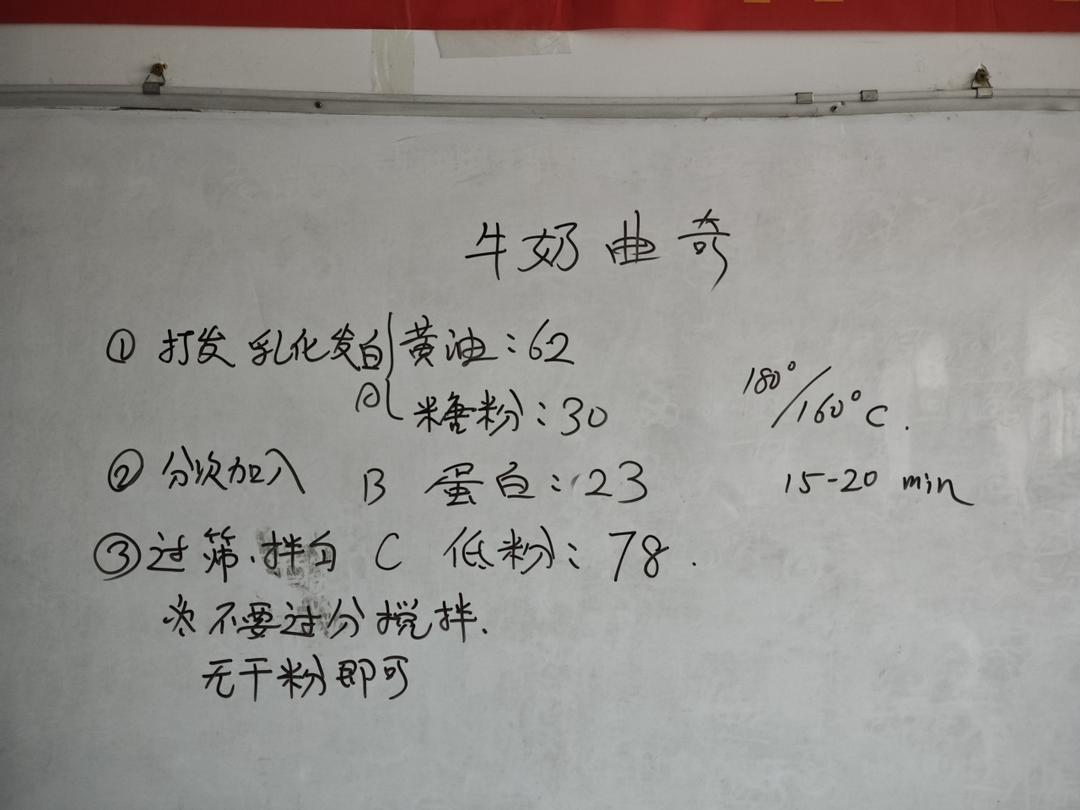 牛奶曲奇
① 打发 乳化发白 { 黄油：62
A 糖粉：30
180°/160°C.
② 分次加入 B 蛋白：23
15-20 min
③ 过筛.拌匀 C 低粉：78.
※ 不要过分搅拌.
无干粉即可